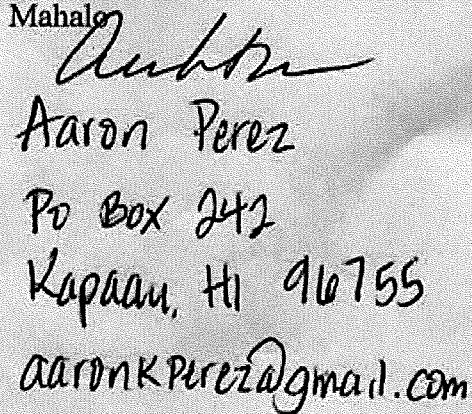 Mahalo
Aaron Perez
Po Box 242
Kapaau, HI 96755
aaronkperez@gmail.com